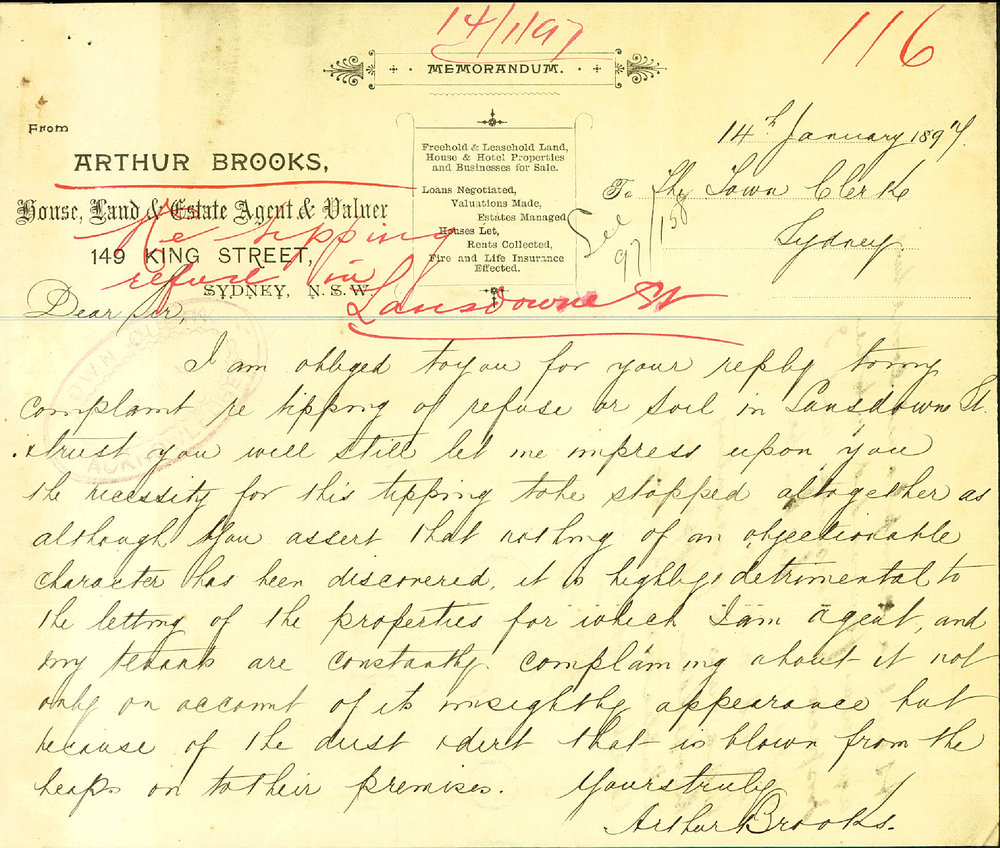 14/1/97
116
MEMORANDUM.
From
ARTHUR BROOKS,
House, Land & Estate Agent & Valuer
149 KING STREET,
SYDNEY, N.S.W.
Freehold & Leasehold Land,
House & Hotel Properties
and Businesses for Sale.
Loans Negotiated,
Valuations Made,
Estates Managed
Houses Let,
Rents Collected,
Fire and Life Insurance
Effected.
14th January 1897.
To The Town Clerk
Sydney
See
97/158
Re tipping
refuse in
Lansdowne St
Dear Sir,
I am obliged to you for your reply to my
complaint re tipping of refuse or soil in Lansdowne St.
I trust you will still let me impress upon you
the necessity for this tipping to be stopped altogether as
although you assert that nothing of an objectionable
character has been discovered, it is highly detrimental to
the letting of the properties for which I am agent, and
my tenants are constantly complaining about it not
only on account of its unsightly appearance but
because of the dust & dirt that is blown from the
heaps on to their premises.
Yours truly
Arthur Brooks.